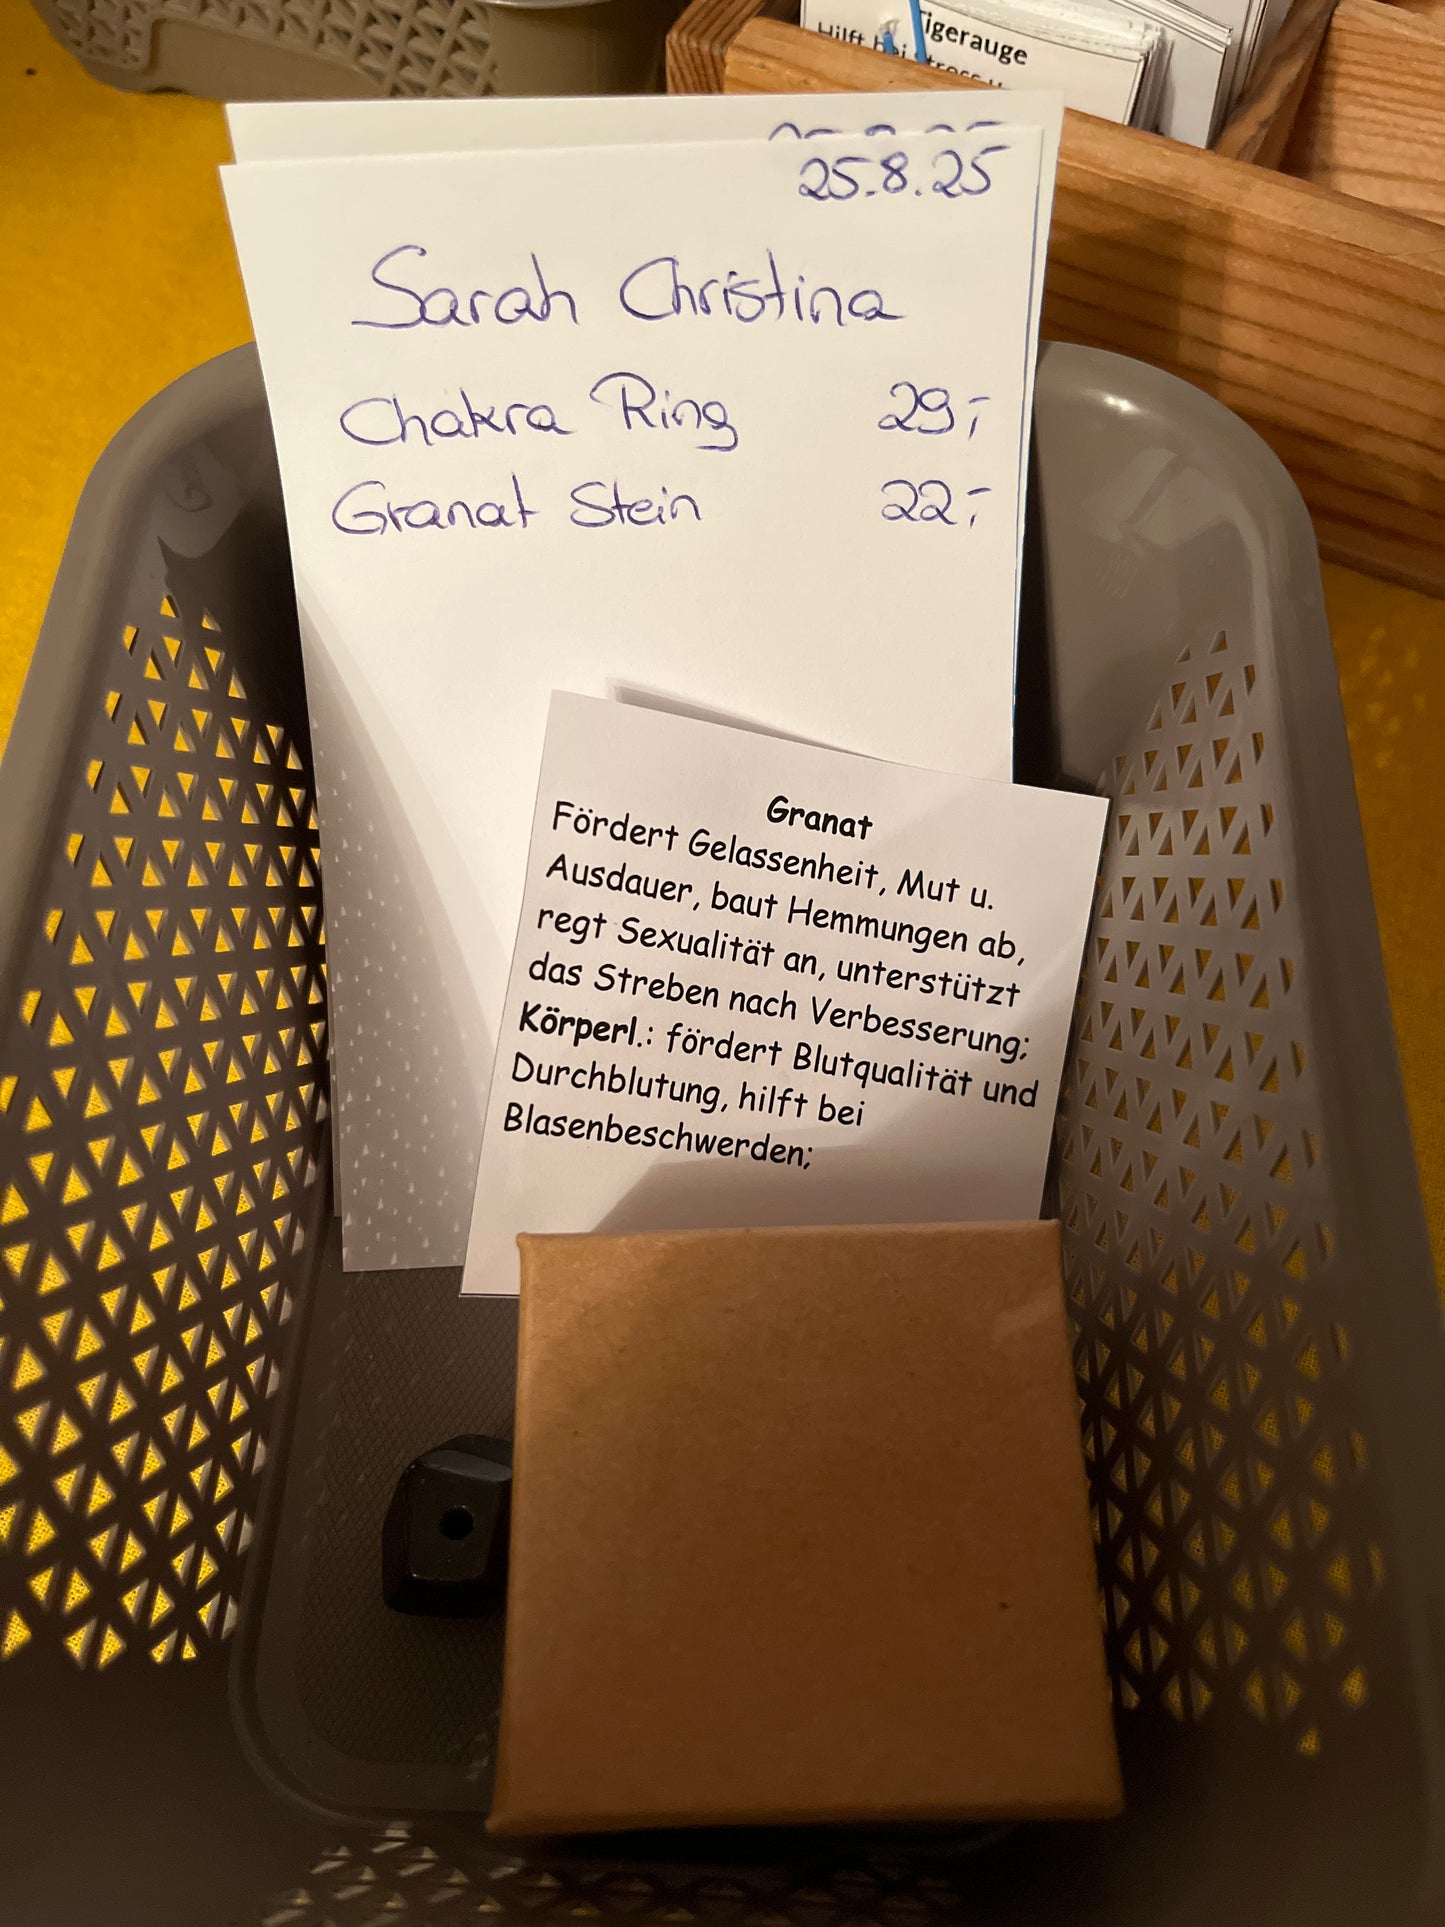 Tigerauge
Hilft bei Stress
25.8.25
Sarah Christina
Chakra Ring 29,-
Granat Stein 22,-
Granat
Fördert Gelassenheit, Mut u.
Ausdauer, baut Hemmungen ab,
regt Sexualität an, unterstützt
das Streben nach Verbesserung;
Körperl.: fördert Blutqualität und
Durchblutung, hilft bei
Blasenbeschwerden;